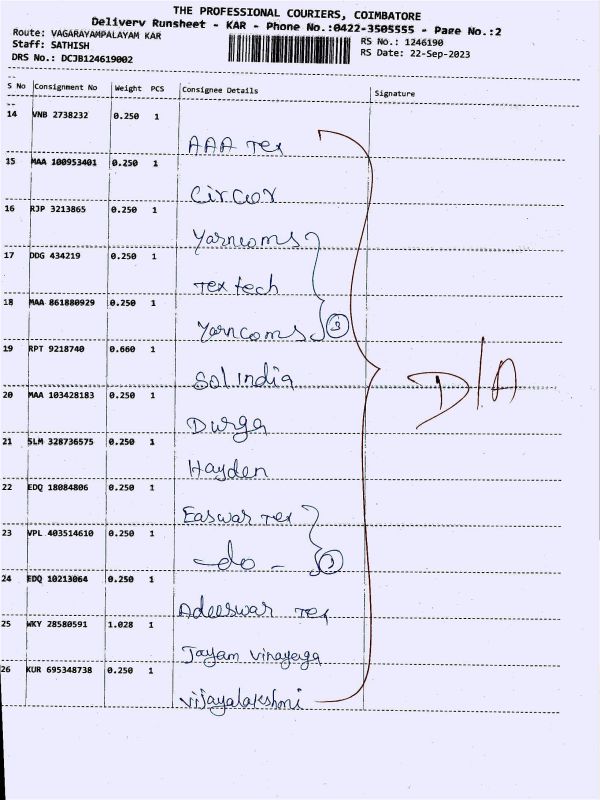 THE PROFESSIONAL COURIERS, COIMBATORE
Delivery Runsheet - KAR - Phone No.:0422-3505555 - Page No.:2
Route: VAGARAYAMPALAYAM KAR
RS No.: 1246190
Staff: SATHISH
RS Date: 22-Sep-2023
DRS No.: DCJB124619002
S No Consignment No Weight PCS Consignee Details Signature
14 VNB 2738232 0.250 1
AAA Tex
15 MAA 100953401 0.250 1
Circor
16 RJP 3213865 0.250 1
Yarncoms
17 DDG 434219 0.250 1
Tex tech
18 MAA 861880929 0.250 1
Yarncoms 3
19 RPT 9218740 0.660 1
Sol India
20 MAA 103428183 0.250 1
D/A
Durga
21 SLM 328736575 0.250 1
Hayden
22 EDQ 18084806 0.250 1
Easwar Tex
23 VPL 403514610 0.250 1
-do-
24 EDQ 10213064 0.250 1
Adeeswar Tex
25 WKY 28580591 1.028 1
Jayam Vinayaga
26 KUR 695348738 0.250 1
Vijayalakshmi